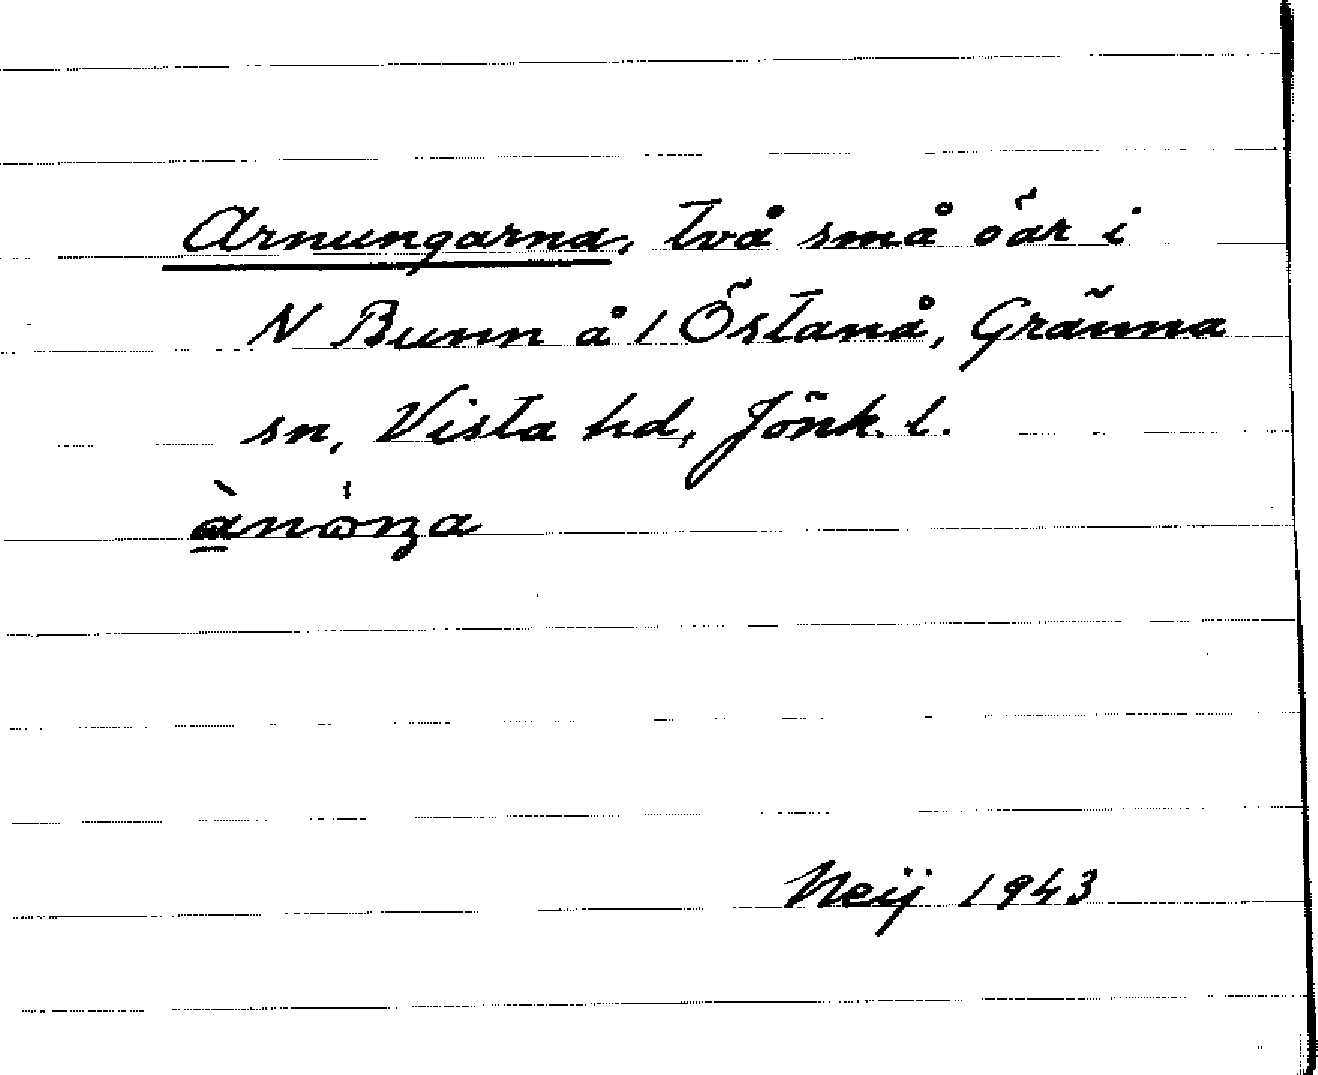 Arnungarna, två små öar i
N Bunn å / Östanå, Gränna
sn, Vista hd, Jönk. l.
Neij 1943